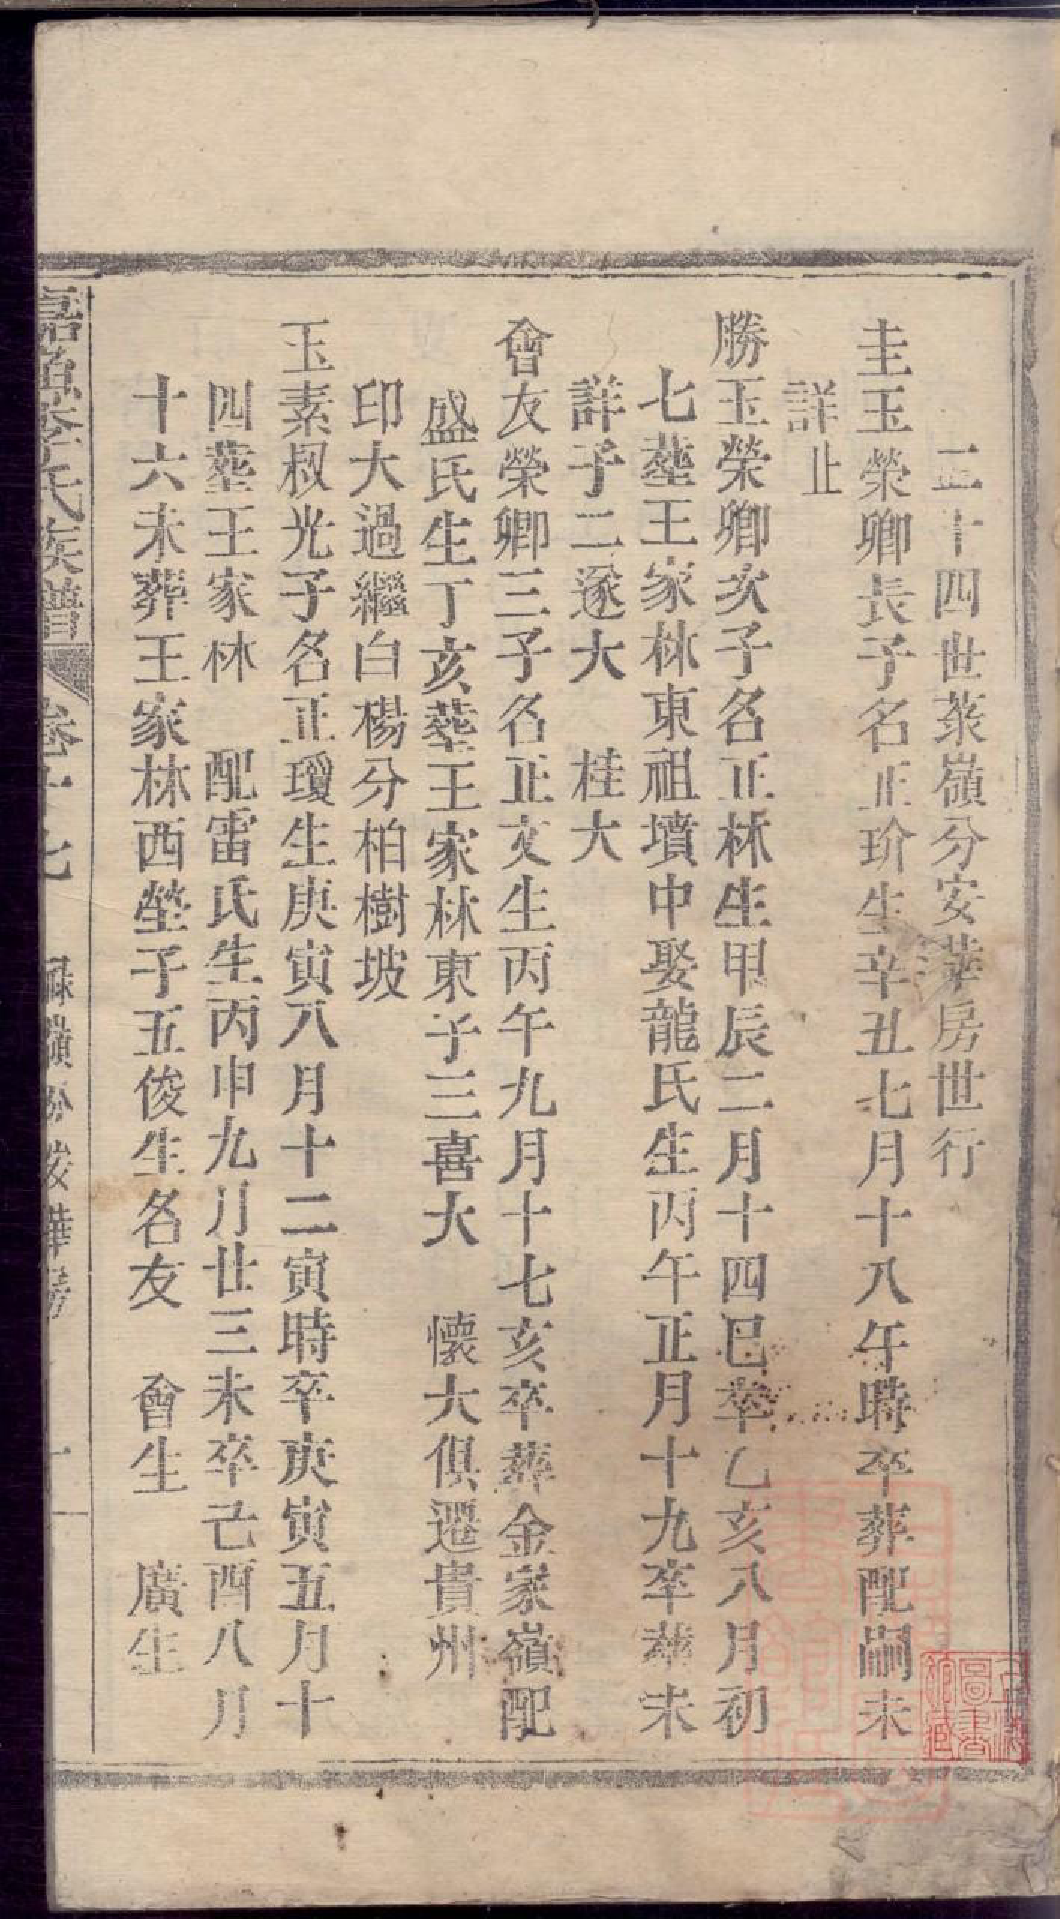 二十四世菉嶺分安華房世行
圭玉榮卿長子名正玠生辛丑七月十八午時卒葬配嗣未
詳止
勝玉榮卿次子名正林生甲辰二月十四巳卒乙亥八月初
七塟王家林東祖墳中娶龍氏生丙午正月十九卒葬未
詳子二遂大 桂大
會友榮卿三子名正文生丙午九月十七亥卒葬金家嶺配
盛氏生丁亥塟王家林東子三喜大 懷大俱遷貴州
印大過繼白楊分柏樹坡
玉素叔光子名正瓊生庚寅八月十二寅時卒庚寅五月十
四塟王家林 配雷氏生丙申九月廿三未卒己酉八月
十六未葬王家林西塋子五俊生名友 會生 廣生
嘉魚李氏族譜 卷十七 菉嶺分安華房 一